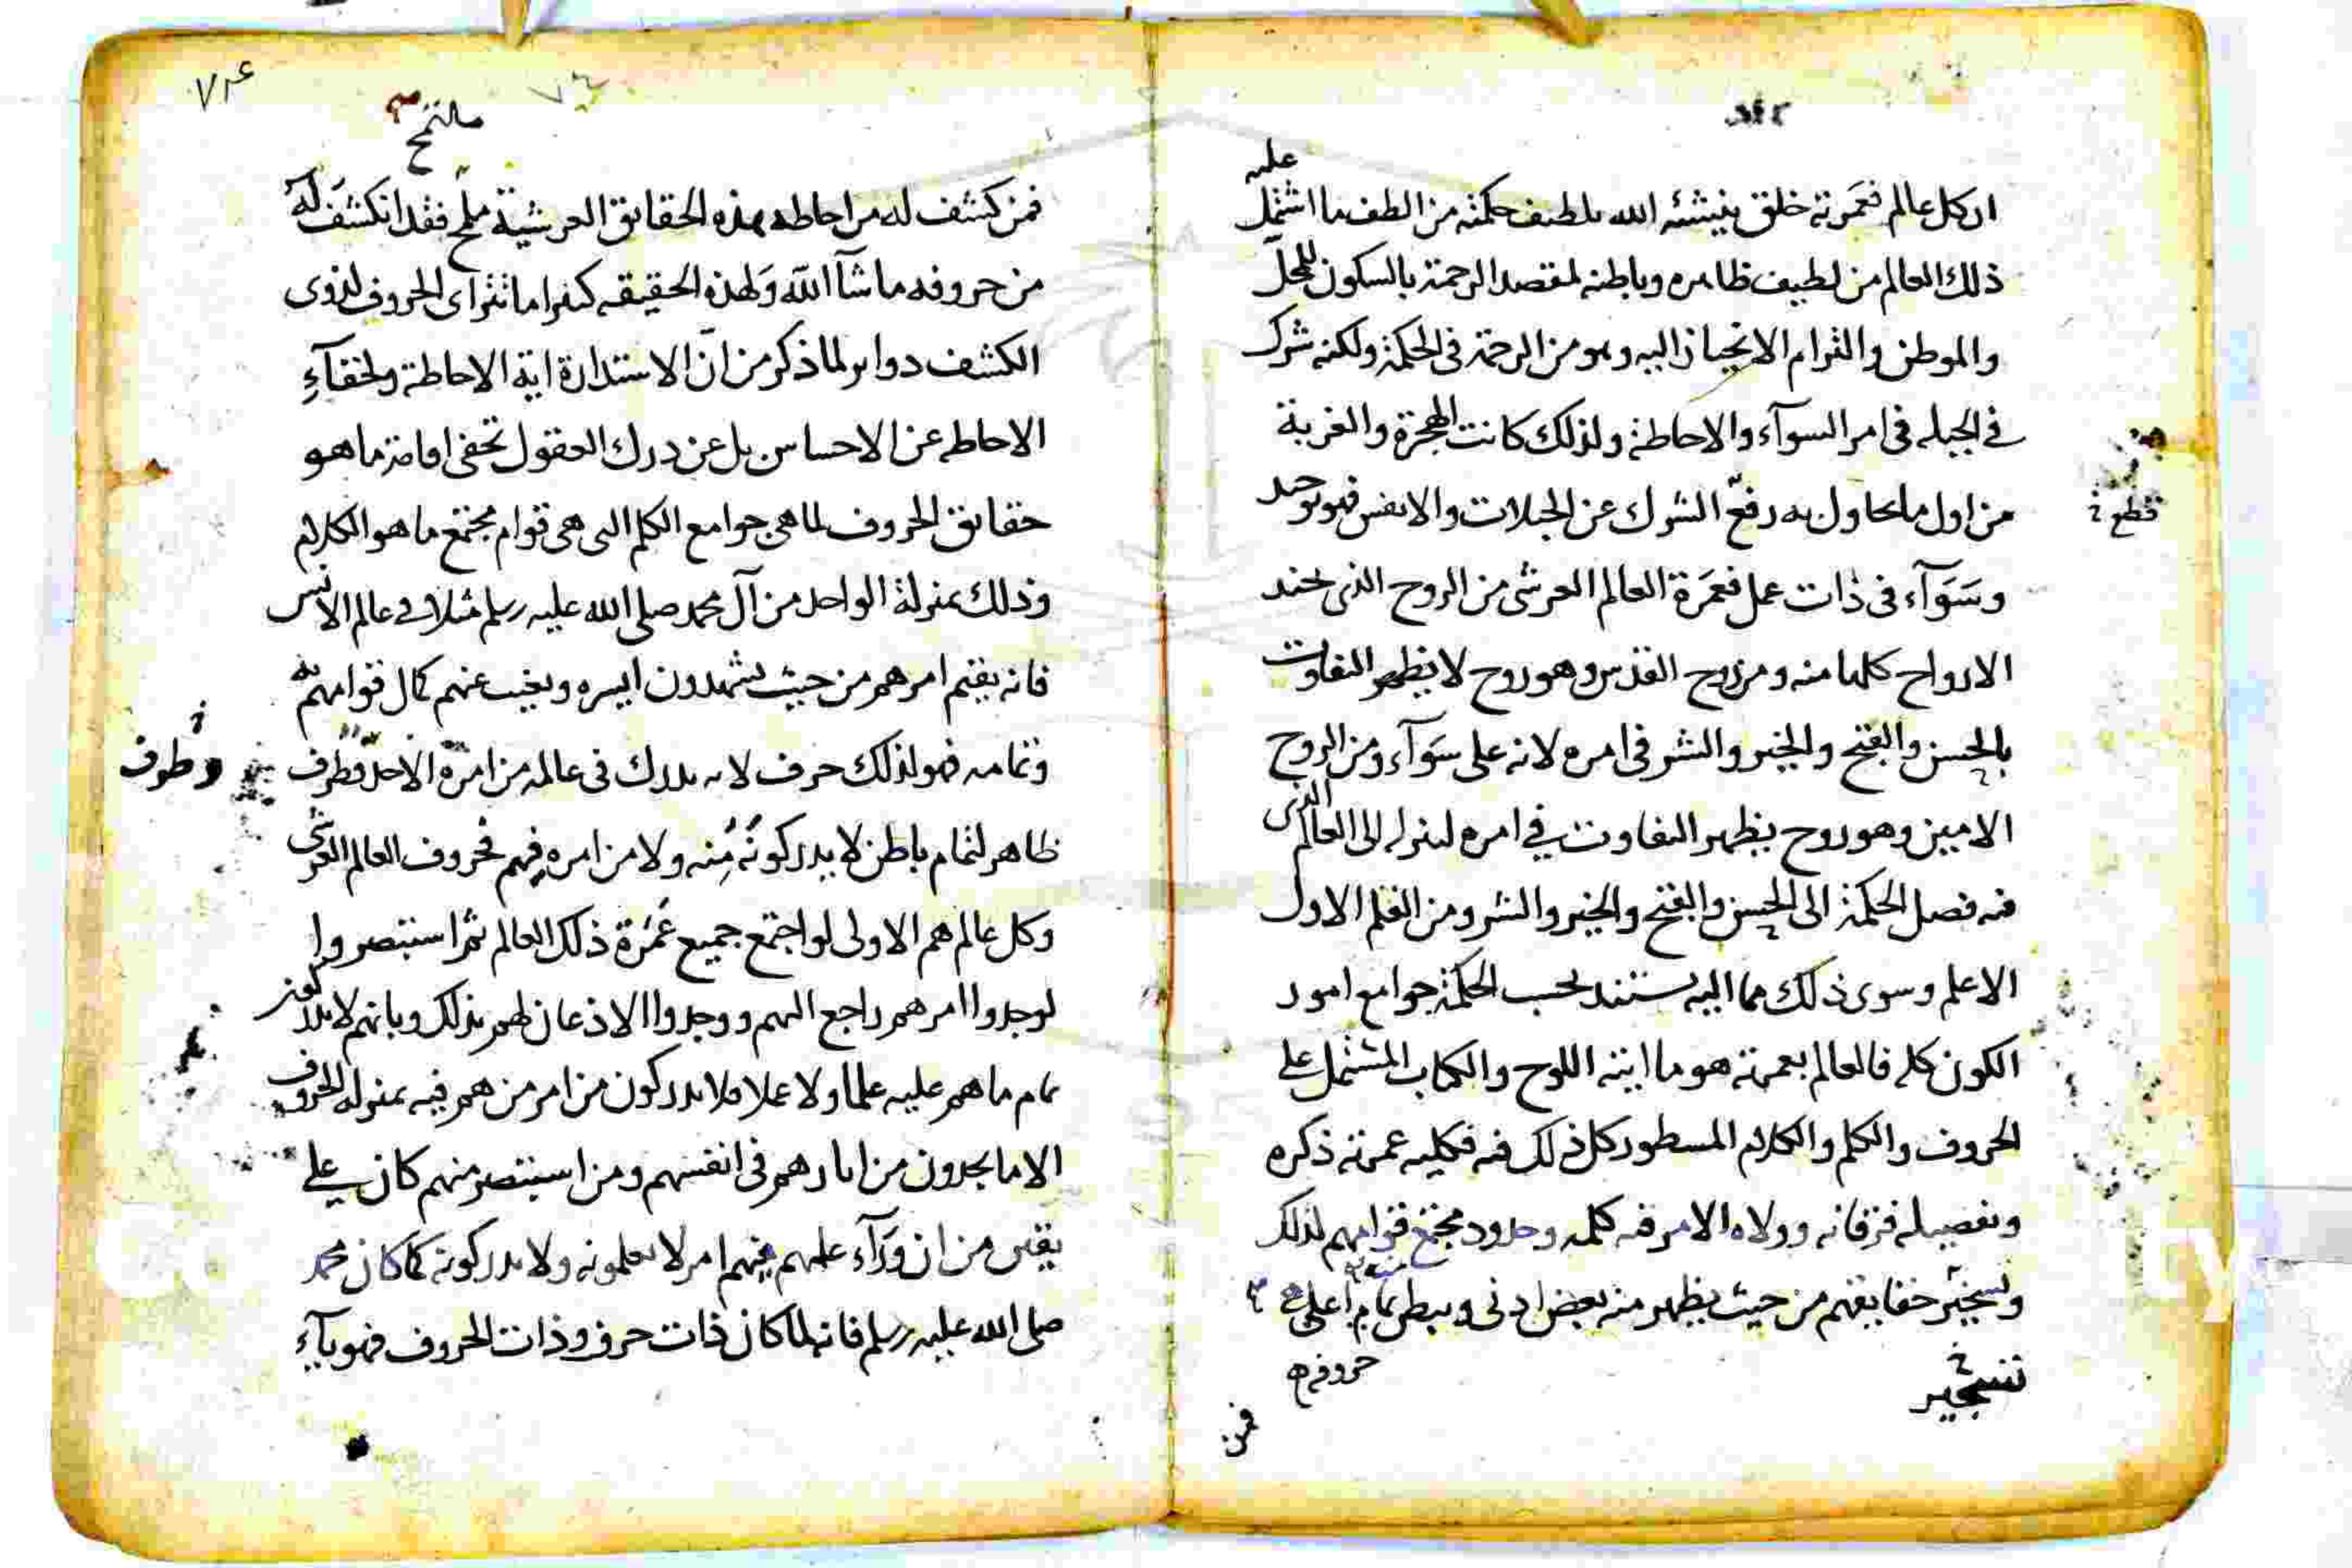 علىه
ان كل عالم فعمرته خلق ينيشئه الله بلطيف حكمته من الطف ما اشتمل
ذلك العالم من لطيف ظاهره وباطنه لمقصد الرحمة بالسكون للمحل
والموطن والتزام الانحياز اليه وهو من الرحمة فى الحكمة ولكنه شرك
فى الجبله فى امر السوآء والاحاطة ولذلك كانت الهجرة والغربة
من اول ما يحاول به رفع الشرك عن الجبلات والانفس فهو توحيد
قطع
وسَوَآء فى ذات عمل فعمَرة العالم العرشى من الروح الذى
الارواح كلها منه ومن روح القدس وهو روح لا يظهر التفاوت
بالحسن والقبح والخير والشر فى امره لانه على سَوَآء ومن الروح
الامين وهو روح يظهر التفاوت فى امره لتنزله الى العالم الذى
فيه فصل الحكمة الى الحسن والقبح والخير والشر ومن القلم الاول
الاعلم وسوى ذلك مما اليه يستند بحسب الحكمة جوامع امور
الكون كله فالعالم بعمرته هو ما ايته اللوح والكتاب المشتمل على
الحروف والكلم والكلام المسطور كل ذلك فيه فكليه عمرته ذكره
وتفصيله فرقانه وولاة الامر فيه كلمه وحدود مجتمع قوامهم لذلك
حقايقهم من حيث يظهر منه بعض ادنى ويبطن تمام اعلى
حروفه
تستجير
فمن
٧٤
فمن كشف له من احاطه بهذه الحقايق العرشية ملمح فقد انكشف له
من حروفه ما شآ الله وَلهذه الحقيقه كثيرا ما تترآى الحروف لذوى
الكشف دواير لما ذكر من انّ الاستدارة اية الاحاطة ولخفآءِ
الاحاطه عن الاحساس بل عن درك العقول تخفى اقامة ما هو
حقايق الحروف لما هى جوامع الكلم التى هى قوام مجتمع ما هو الكلام
وذلك بمنزلة الواحد من آل محمد صلى الله عليه وسلم مثلا فى عالم الانس
فانه يقيم امرهم من حيث يشهدون ايسره ويغيب عنهم كمال قوامهم به
وتمامه فهو لذلك حرف لانه يدرك فى عالمه من امره الاحد وطرف
وطرف
ظاهر لتمام باطن لا يدركونُه مِنه ولا من امره فيهم فحروف العالم العرشى
وكل عالم هم الاولى لو اجتمع جميع عَمَرة ذلك العالم ثم استبصروا
لوجدوا امرهم راجع اليهم ووجدوا الاذعان لهم بذلك وبانهم لا يدركون
تمام ما هم عليه علما ولا عملا فلا يدركون من امر من هم فيه بمنزله الحروف
الا ما يجدون من اثارهم فى انفسهم ومن استبصر منهم كان على
يقين من ان ورَآء علمهم فيهم امر لا يعلمونه ولا يدركونه كما كان محمد
صلى الله عليه وسلم فانه لما كان ذات حرف وذات الحروف فهو بآءِ